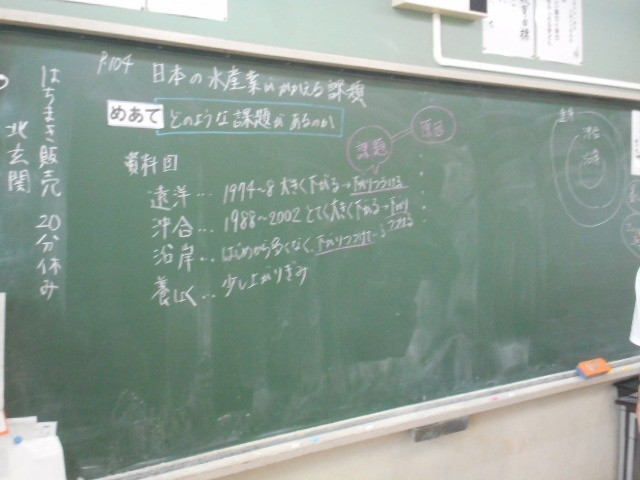 はちまき販売 20分休み
北玄関
P.104 日本の水産業がかかえる課題
めあて どのような課題があるのか
課題
原因
資料図
遠洋… 1974~8 大きく下がる→下がりつづける
沖合… 1988~2002 とても大きく下がる→下がりつづける
沿岸… はじめから多くなく、下がりつづけている
養しょく… 少し上がりぎみ
遠洋
沖合
沿岸